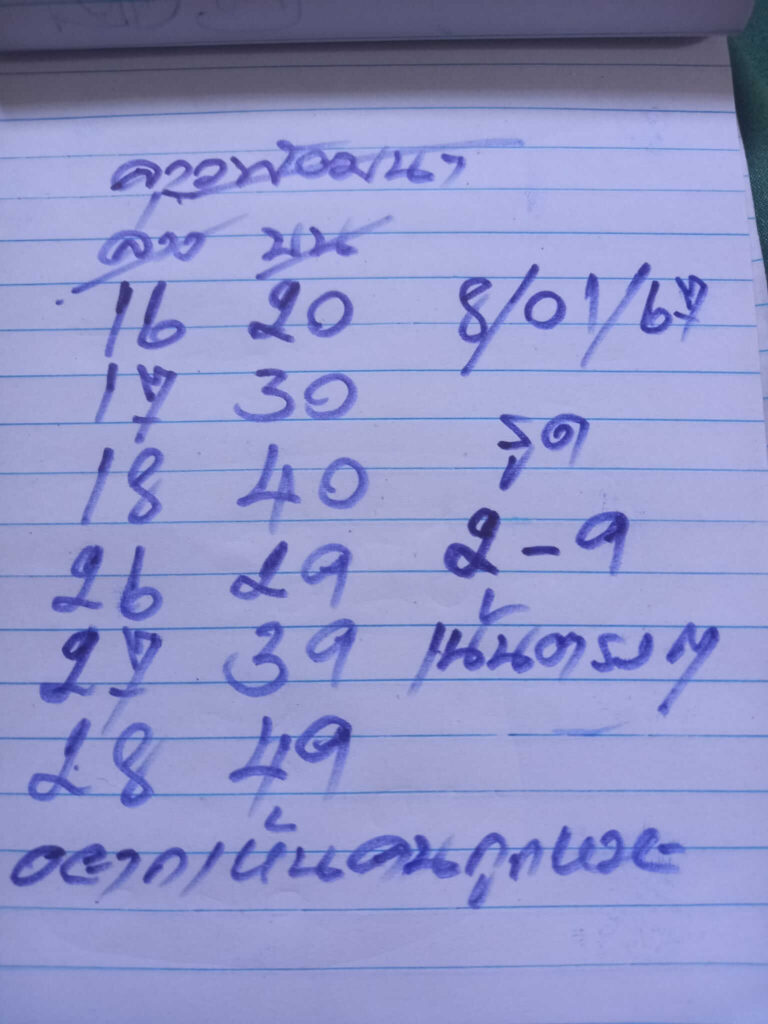 ลาวพัฒนา
ล่าง บน
16 20 8/01/67
17 30
18 40 รูด
26 29 2-9
27 39 เน้นตรงๆ
28 49
อยากเห็นคนถูกหวย